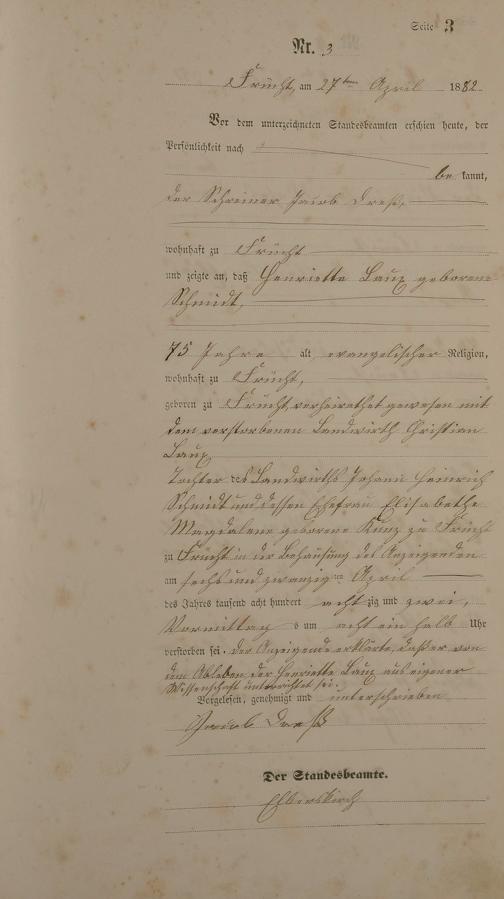 Seite 3
Nr. 3
Frücht, am 27ten April 1882
Vor dem unterzeichneten Standesbeamten erschien heute, der
Persönlichkeit nach
be kannt,
der Schreiner Jacob Dreß,
wohnhaft zu Frücht
und zeigte an, daß Henriette Laux geborene
Schmidt,
75 Jahre alt, evangelischer Religion,
wohnhaft zu Frücht,
geboren zu Frücht, verheirathet gewesen mit
dem verstorbenen Landwirth Christian
Laux
Tochter des Landwirths Johann Heinrich
Schmidt und dessen Ehefrau Elisabethe
Magdalene geborene Kunz zu Frücht
zu Frücht in der Behausung des Anzeigenden
am sechs und zwanzigten April
des Jahres tausend acht hundert acht zig und zwei,
Vormittags um acht ein halb Uhr
verstorben sei. Der Anzeigende erklärte, daß er von
dem Ableben der Henriette Laux aus eigener
Wissenschaft unterrichtet sei.
Vorgelesen, genehmigt und unterschrieben
Jacob Dreß
Der Standesbeamte.